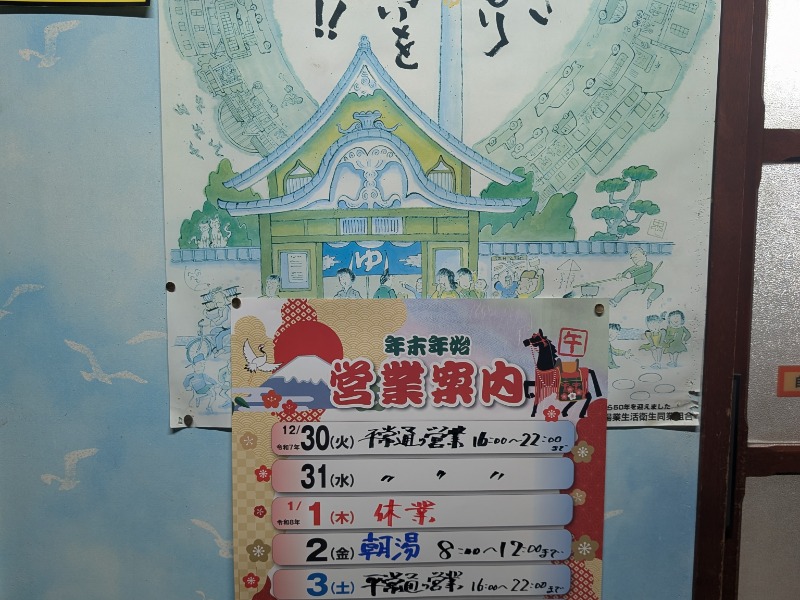 いを
!!
ゆ
年末年始
営業案内
午
12/30(火) 平常通り営業 16:00〜22:00まで
令和7年
31(水) 〃 〃 〃
1/1(木) 休業
令和8年
2(金) 朝湯 8:00〜12:00まで
3(土) 平常通り営業 16:00〜22:00まで
60年を迎えました
業生活衛生同業組合